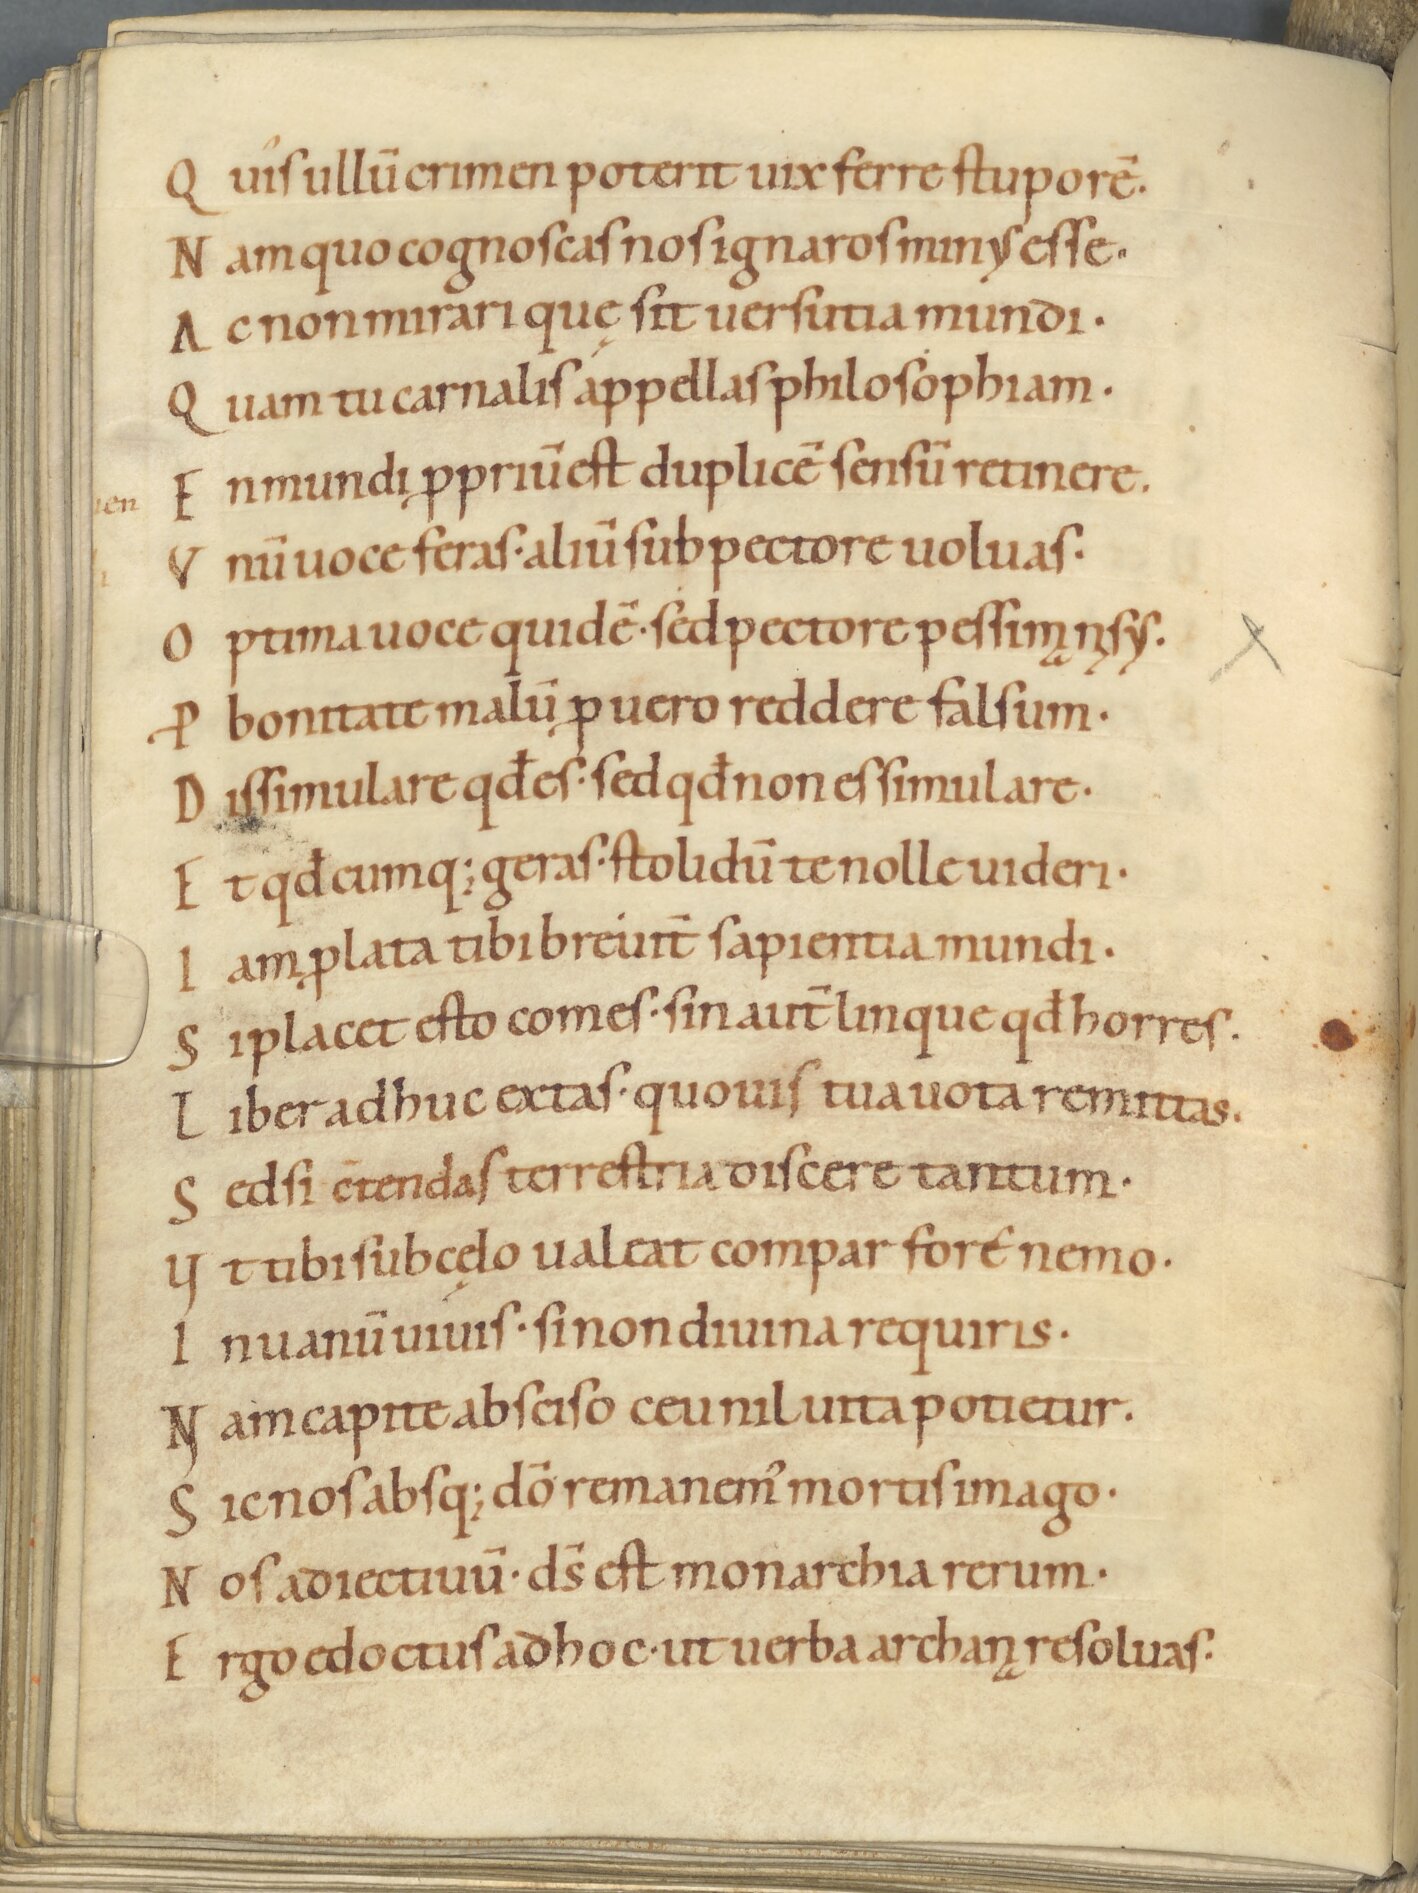 Quis ullū crimen poterit uix ferre stuporē.
Nam quo cognoscas nos ignaros minꝰ esse.
Ac non mirari quę sit uersutia mundi.
Quam tu carnalis appellas philosophiam.
En mundi ꝓpriū est duplicē sensū retinere.
Vnū uoce feras · aliū sub pectore uoluas.
Optima uoce quidē · sed pectore
Ꝓ bonitate malū ꝓ uero reddere falsum.
Dissimulare qđ es · sed qđ non es simulare.
Et qđcumq; geras · stolidū te nolle uideri.
Iam ꝓlata tibi breuit̄ sapientia mundi.
Si placet esto comes · sin aut̄ linque qđ horres.
Liber adhuc extas · quouis tua uota remittas.
Sed si c̄tendas terrestria discere tantum.
Vt tibi sub cęlo ualeat compar fore nemo.
In uanū uiuis · si non diuina requiris.
Nam capite absciso ceu nil uita potietur.
Sic nos absq; dō remanemꝰ mortis imago.
Nos adiectiuū · ds̄ est monarchia rerum.
Ergo edoctus ad hoc · ut uerba archana resoluas.